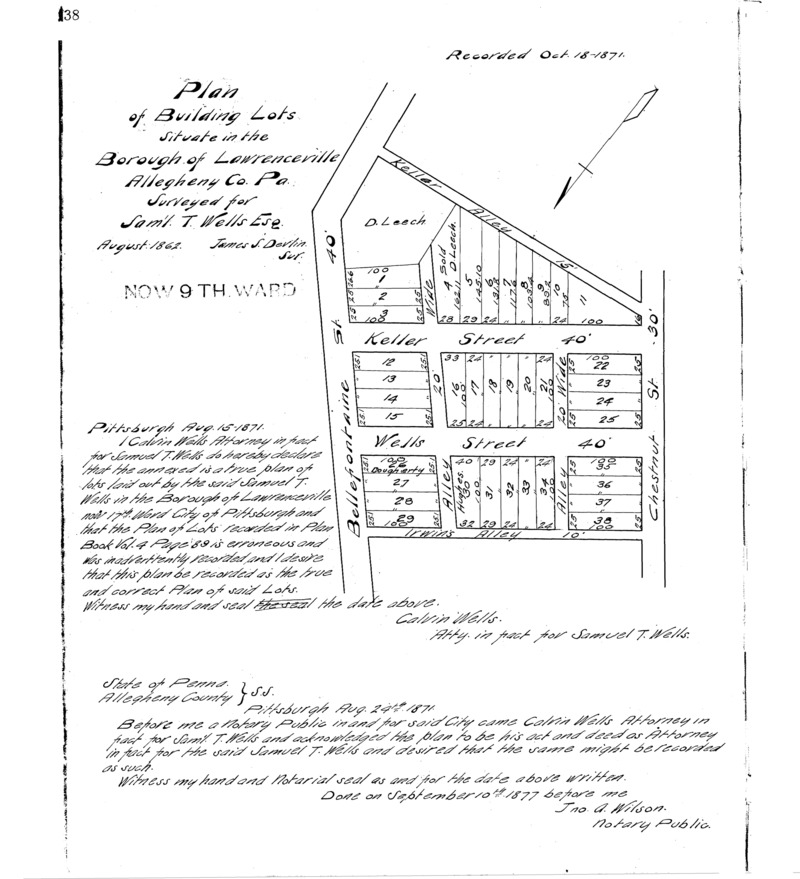 38
Recorded Oct. 18-1871.
Plan
of Building Lots
Situate in the
Borough of Lawrenceville
Allegheny Co. Pa.
Surveyed for
Sam'l. T. Wells Esq.
August 1862. James S. Devlin.
Sur.
NOW 9TH. WARD
Keller Alley 15'
D. Leech.
Bellefontaine St. 40'
100
1
2
3
100
Wide
4 Sold D. Leech.
5
6
7
8
9
10
11
28 29 24 " " " " 24 100
Keller Street 40'
30'
12
13
14
15
20'
33 24 " " " 24
16 17 18 19 20 21
100
25 24 " " " 24
20' Wide
100
22
23
24
25
Wells Street 40'
100
26
Dougherty
27
28
29
100
Alley
40 29 24 " 24
Hughes.
30 31 32 33 34
32 29 24 " 24
Alley
100
35
36
37
38
100
Irwin's Alley 10'
Chestnut St
Pittsburgh Aug. 15-1871.
I Calvin Wells Attorney in fact
for Samuel T. Wells do hereby declare
that the annexed is a true plan of
lots laid out by the said Samuel T.
Wells in the Borough of Lawrenceville
now 17th. Ward City of Pittsburgh and
that the Plan of Lots recorded in Plan
Book Vol. 4 Page 89 is erroneous and
was inadvertently recorded, and I desire
that this plan be recorded as the true
and correct Plan of said Lots.
Witness my hand and seal the seal the date above.
Calvin Wells.
Atty. in fact for Samuel T. Wells.
State of Penna.
Allegheny County } S.S.
Pittsburgh Aug. 24th. 1871.
Before me a Notary Public in and for said City came Calvin Wells Attorney in
fact for Saml. T. Wells and acknowledged the plan to be his act and deed as Attorney
in fact for the said Samuel T. Wells and desired that the same might be recorded
as such.
Witness my hand and Notarial seal as and for the date above written.
Done on September 10th. 1877 before me
Jno. A. Wilson.
Notary Public.